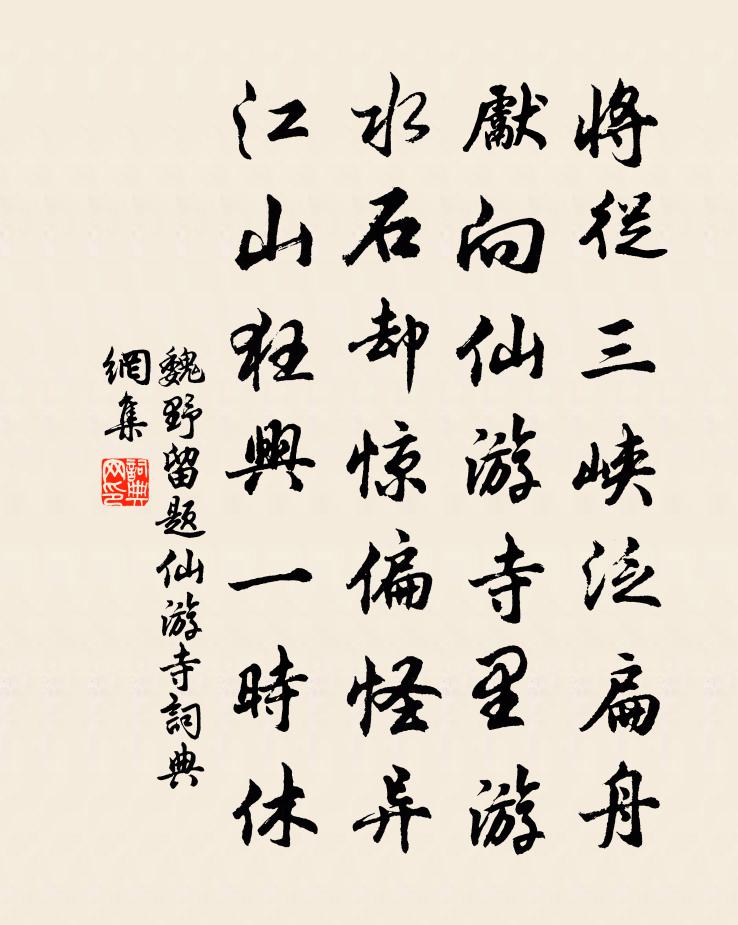 將從三峽泛扁舟
獻向仙游寺里游
水石却惊偏怪异
江山狂興一時休
魏野留题仙游寺詞典
網集
詞典网印